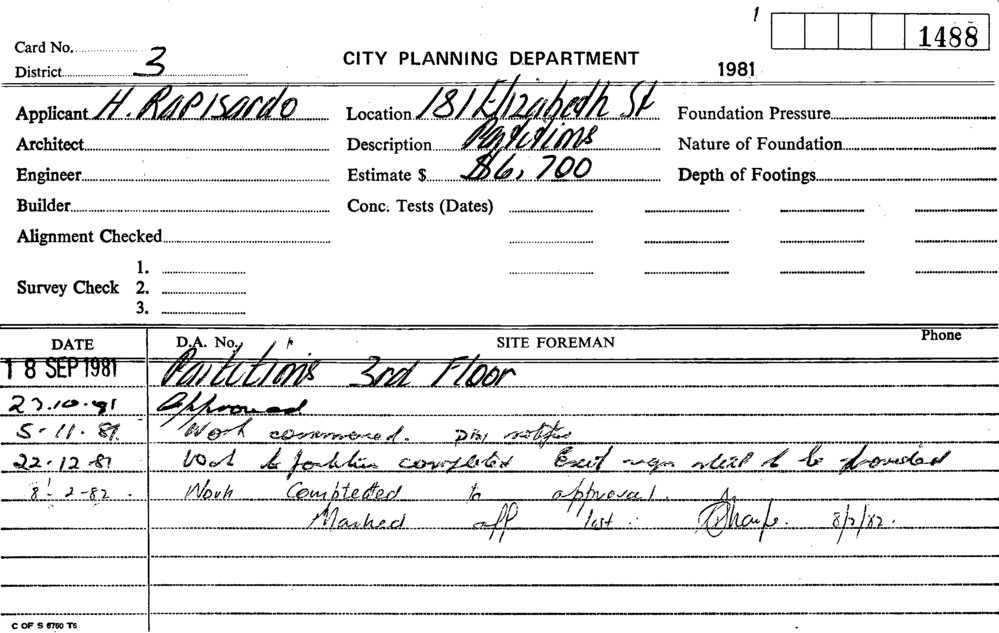 1
1488
Card No.
District 3
CITY PLANNING DEPARTMENT
1981
Applicant H. RAPISARDO
Location 181 Elizabeth St
Foundation Pressure
Architect
Description Partitions
Nature of Foundation
Engineer
Estimate $ $6,700
Depth of Footings
Builder
Conc. Tests (Dates)
Alignment Checked
Survey Check
1.
2.
3.
DATE
D.A. No.
SITE FOREMAN
Phone
18 SEP 1981 Partitions 3rd Floor
23.10.81 Approved
5-11-81. Work commenced.
22-12-81 Work to partition completed Exit sign still to be provided
8-2-82. Work Completed to approval.
Marked off list. 8/2/82.
C OF S 6760 T5